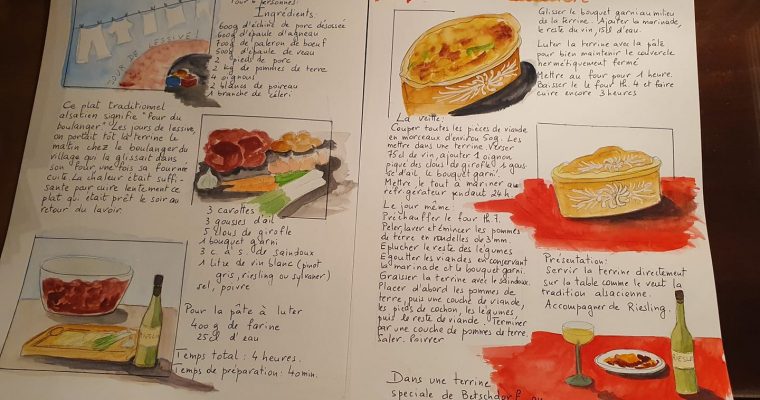 Pour 6 personnes:
Ingrédients:
600g d'échine de porc désossée
600g d'épaule d'agneau
700g de paleron de bœuf
500g d'épaule de veau
2 pieds de porc
2 kg de pommes de terre
4 oignons
2 blancs de poireau
1 branche de céleri
JOUR DE LESSIVE!
Ce plat traditionnel
alsatien signifie "four du
boulanger" Les jours de lessive,
on portait tôt la terrine le
matin chez le boulanger du
village qui la glissait dans
son four une fois sa fournée
cuite. La chaleur était suffi-
sante pour cuire lentement ce
plat qui était prêt le soir au
retour du lavoir.
3 carottes
3 gousses d'ail
5 clous de girofle
1 bouquet garni
3 c. à s. de saindoux
1 litre de vin blanc (pinot
gris, riesling ou sylvaner)
sel, poivre
Pour la pâte à luter
400 g de farine
25cl d'eau
Temps total: 4 heures.
Temps de préparation: 40min.
Glisser le bouquet garni au milieu
de la terrine. Ajouter la marinade,
le reste du vin, 15cl d'eau.
Luter la terrine avec la pâte
pour bien maintenir le couvercle
hermétiquement fermé
Mettre au four pour 1 heure.
Baisser le four th. 4 et faire
cuire encore 3 heures
La veille:
Couper toutes les pièces de viande
en morceaux d'environ 50g. Les
mettre dans une terrine. Verser
75cl de vin, ajouter 1 oignon,
piqué des clous de girofle, 1 gous-
se d'ail, le bouquet garni.
Mettre le tout à mariner au
réfrigérateur pendant 24h.
Le jour même:
Préchauffer le four th 7.
Peler, laver et émincer les pommes
de terre en rondelles de 3mm.
Eplucher le reste des légumes
Egoutter les viandes en conservant
la marinade et le bouquet garni.
Graisser la terrine avec le saindoux.
Placer d'abord les pommes de
terre, puis une couche de viande,
les pieds de cochon, les légumes,
puis le reste de viande. Terminer
par une couche de pommes de terre.
Saler. Poivrer
Présentation:
Servir la terrine directement
sur la table comme le veut la
tradition alsacienne.
Accompagner de Riesling.
RIESLING
Dans une terrine
spéciale de Betschdorf ou